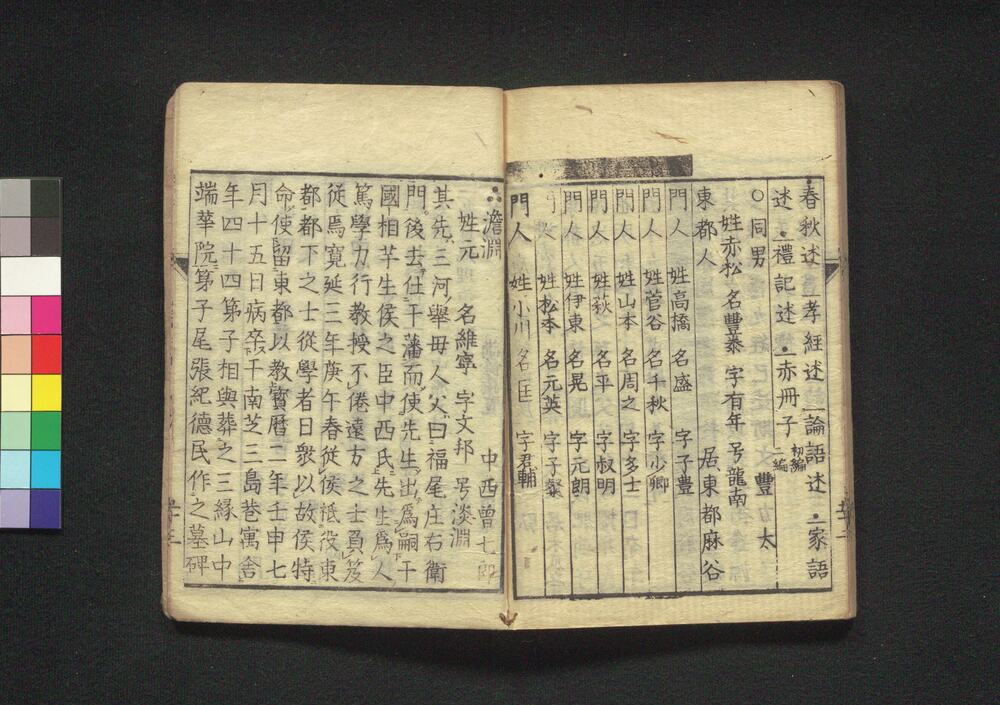 春秋述 一孝経述 一論語述 一家語
述 一禮記述 一赤冊子 初編 二編
○同男 豐太
姓赤松 名豐泰 字有年 号龍南
東都人 居東都麻谷
門人 姓高橋 名盛 字子豊
門人 姓菅谷 名千秋 字少卿
門人 姓山本 名周之 字多士
門人 姓萩 名平 字叔明
門人 姓伊東 名晃 字元朗
姓松本 名元英 字子粲
門人 姓小川 名匡 字君輔
澹淵 中西曾七郎
姓元 名維寧 字文邦 号淡淵
其先三河ノ舉母人父曰福尾庄右衛
門後去仕干藩而使先生出爲嗣干
國相竿生侯之臣中西氏先生爲人
篤學力行教授不倦遠方之士負笈
従焉寛延三年庚午春従侯祗役東
都都下之士從學者日衆以故侯特
命使留東都以教寶暦二年壬申七
月十五日病卒干南芝三島巷寓舍
年四十四第子相與葬之三縁山中
端華院第子尾張紀德民作之墓碑